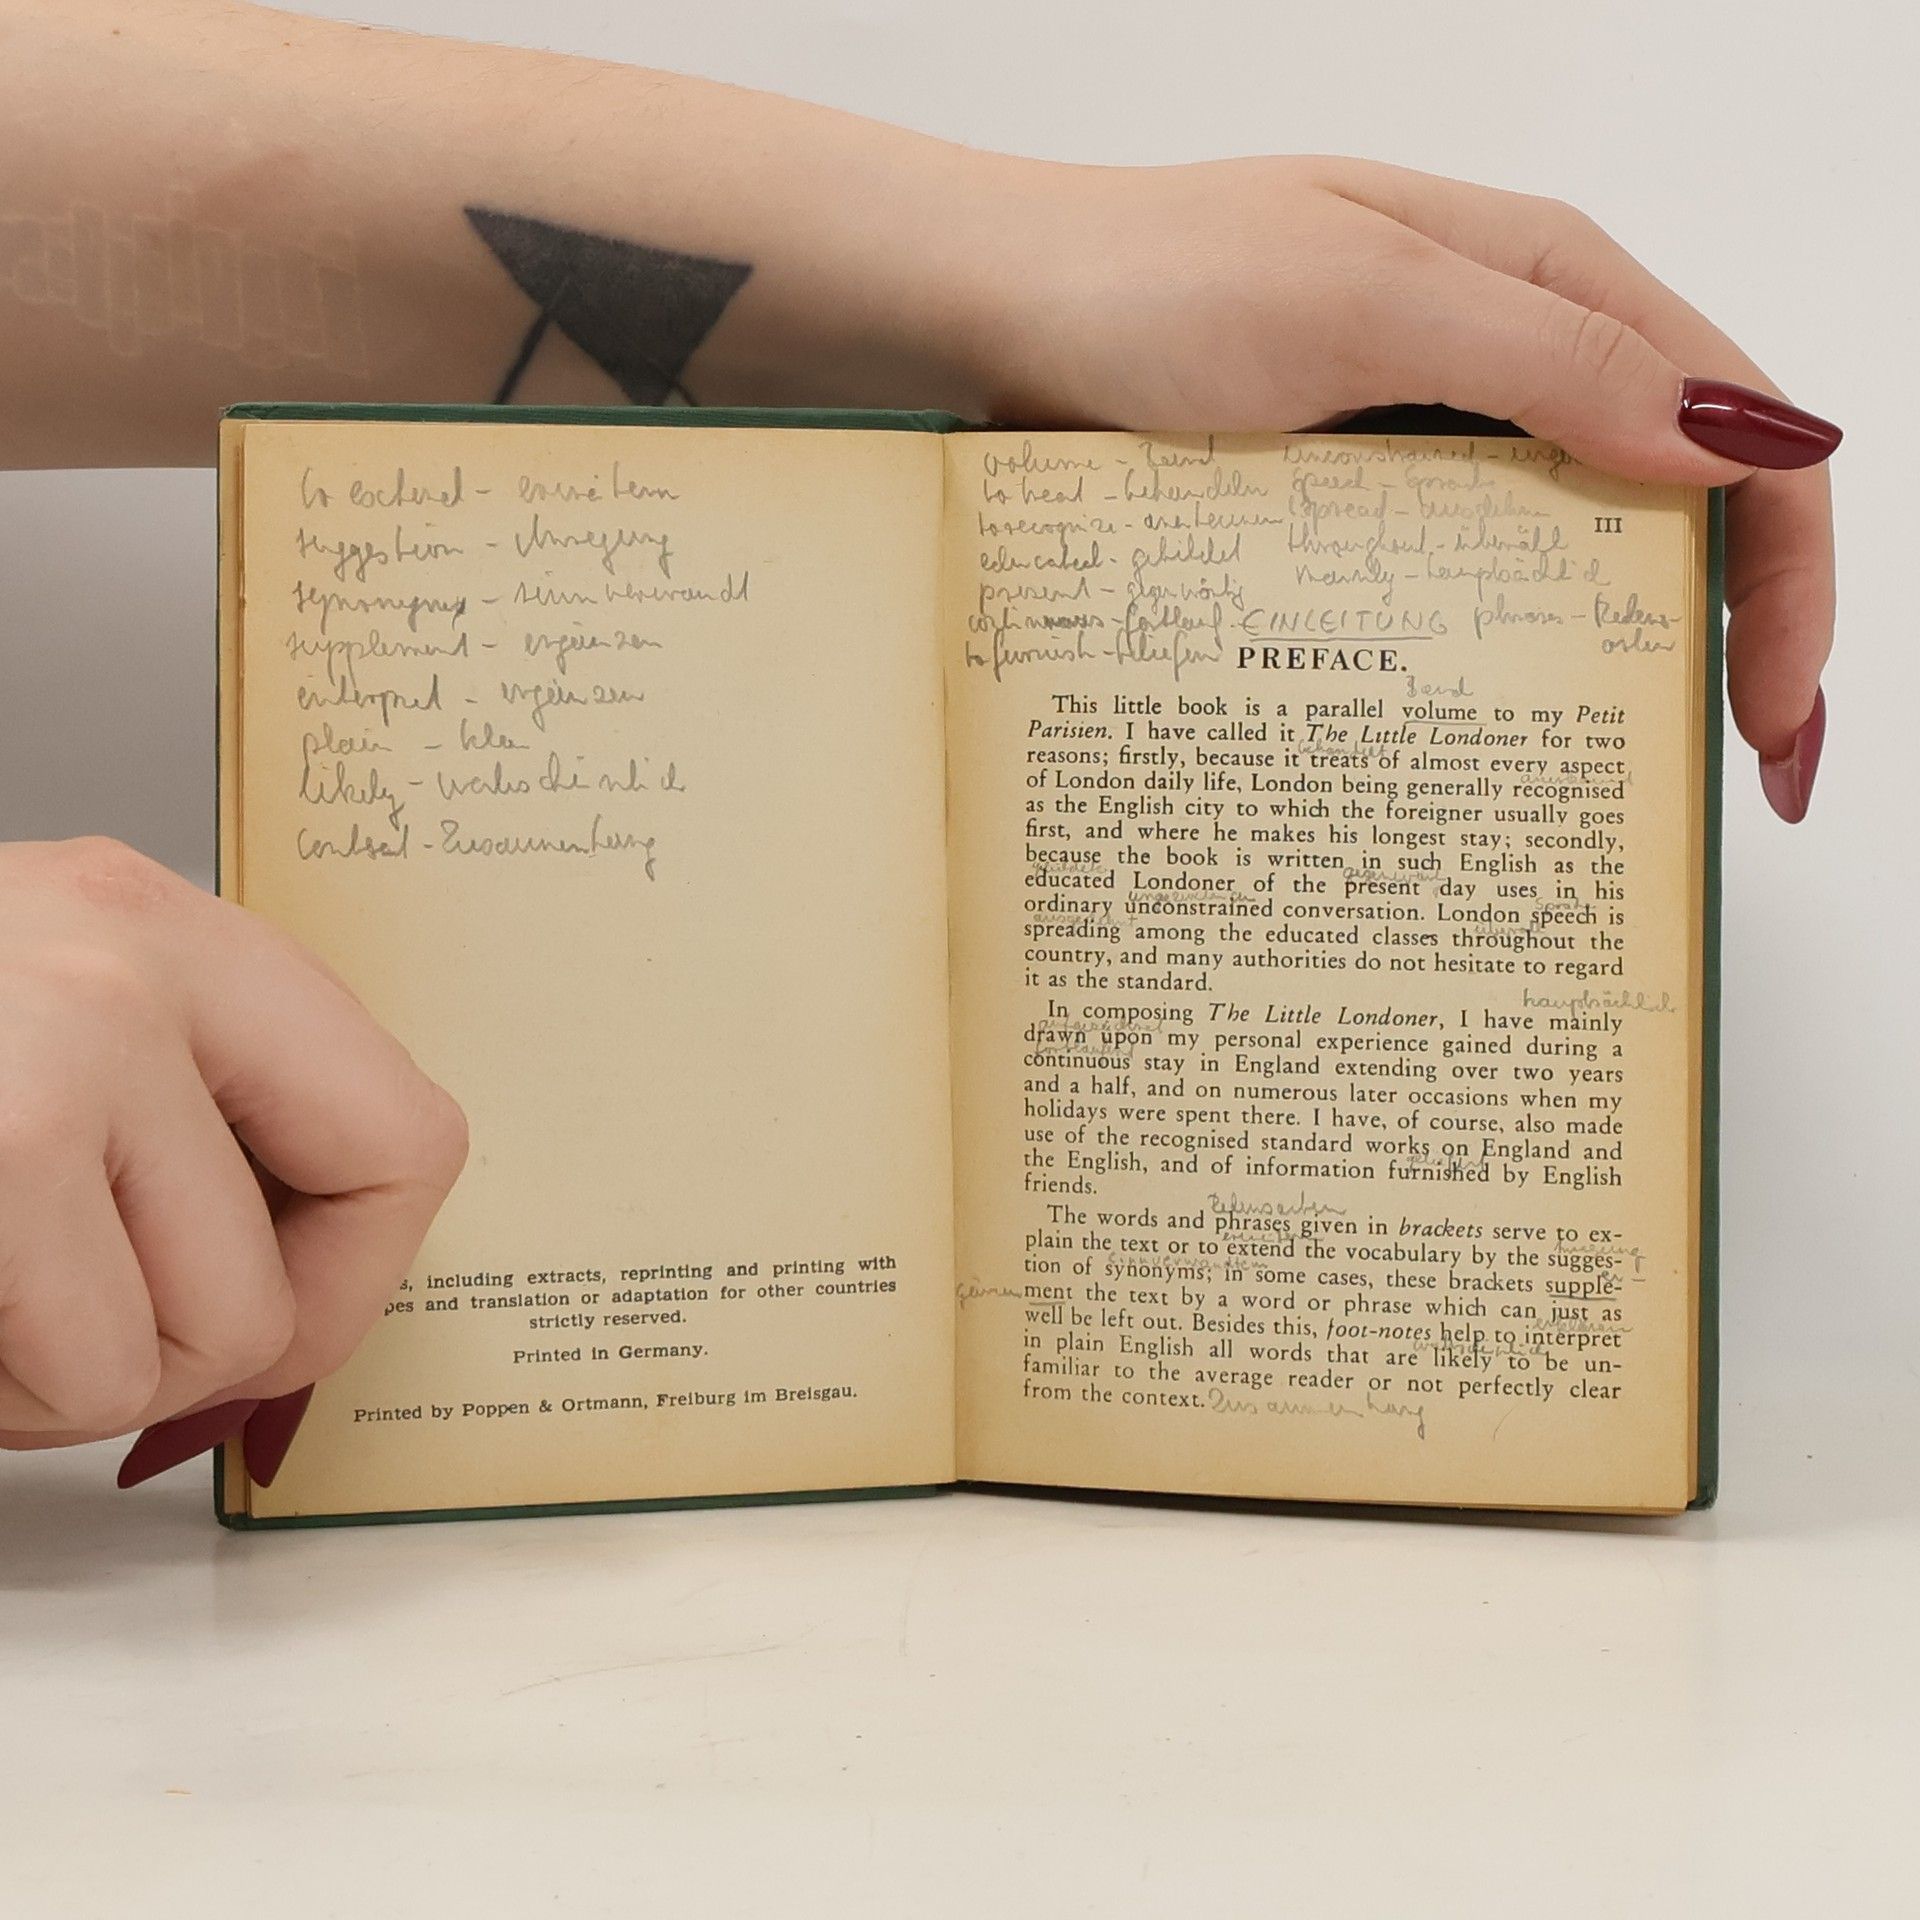 to extend - erweitern
suggestion - Anregung
synonym - sinnverwandt
supplement - ergänzen
interpret - ergänzen
plain - klar
likely - wahrscheinlich
context - Zusammenhang
s, including extracts, reprinting and printing with
pes and translation or adaptation for other countries
strictly reserved.
Printed in Germany.
Printed by Poppen & Ortmann, Freiburg im Breisgau.
volume - Band
to treat - behandeln
to recognize - anerkennen
educated - gebildet
present - gegenwärtig
continuous - fortlauf.
to furnish - beliefern
unconstrained - unge
speech - Sprache
spread - ausdehnen
throughout - überall
mainly - hauptsächlich
phrases - Redens-
arten
III
EINLEITUNG
PREFACE.
Band
This little book is a parallel volume to my Petit
Parisien. I have called it The Little Londoner for two
behandelt
reasons; firstly, because it treats of almost every aspect
anerkannt
of London daily life, London being generally recognised
as the English city to which the foreigner usually goes
first, and where he makes his longest stay; secondly,
because the book is written in such English as the
gebildete
educated Londoner of the present day uses in his
ordinary unconstrained conversation. London speech is
ausgedehnt überall
spreading among the educated classes throughout the
country, and many authorities do not hesitate to regard
it as the standard.
hauptsächlich
In composing The Little Londoner, I have mainly
drawn upon my personal experience gained during a
fortlaufend
continuous stay in England extending over two years
and a half, and on numerous later occasions when my
holidays were spent there. I have, of course, also made
use of the recognised standard works on England and
geliefert
the English, and of information furnished by English
friends.
Redensarten
The words and phrases given in brackets serve to ex-
erweitern Anregung
plain the text or to extend the vocabulary by the sugges-
tion of synonyms; in some cases, these brackets supple-
ment the text by a word or phrase which can just as
well be left out. Besides this, foot-notes help to interpret
wahrscheinlich
in plain English all words that are likely to be un-
familiar to the average reader or not perfectly clear
from the context. Zusammenhang